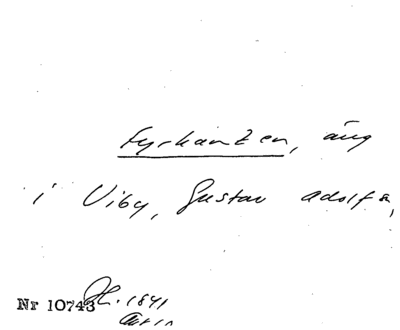 fyrkanten, äng
i Viby, Gustav Adolf s,
Nr 10743 1841